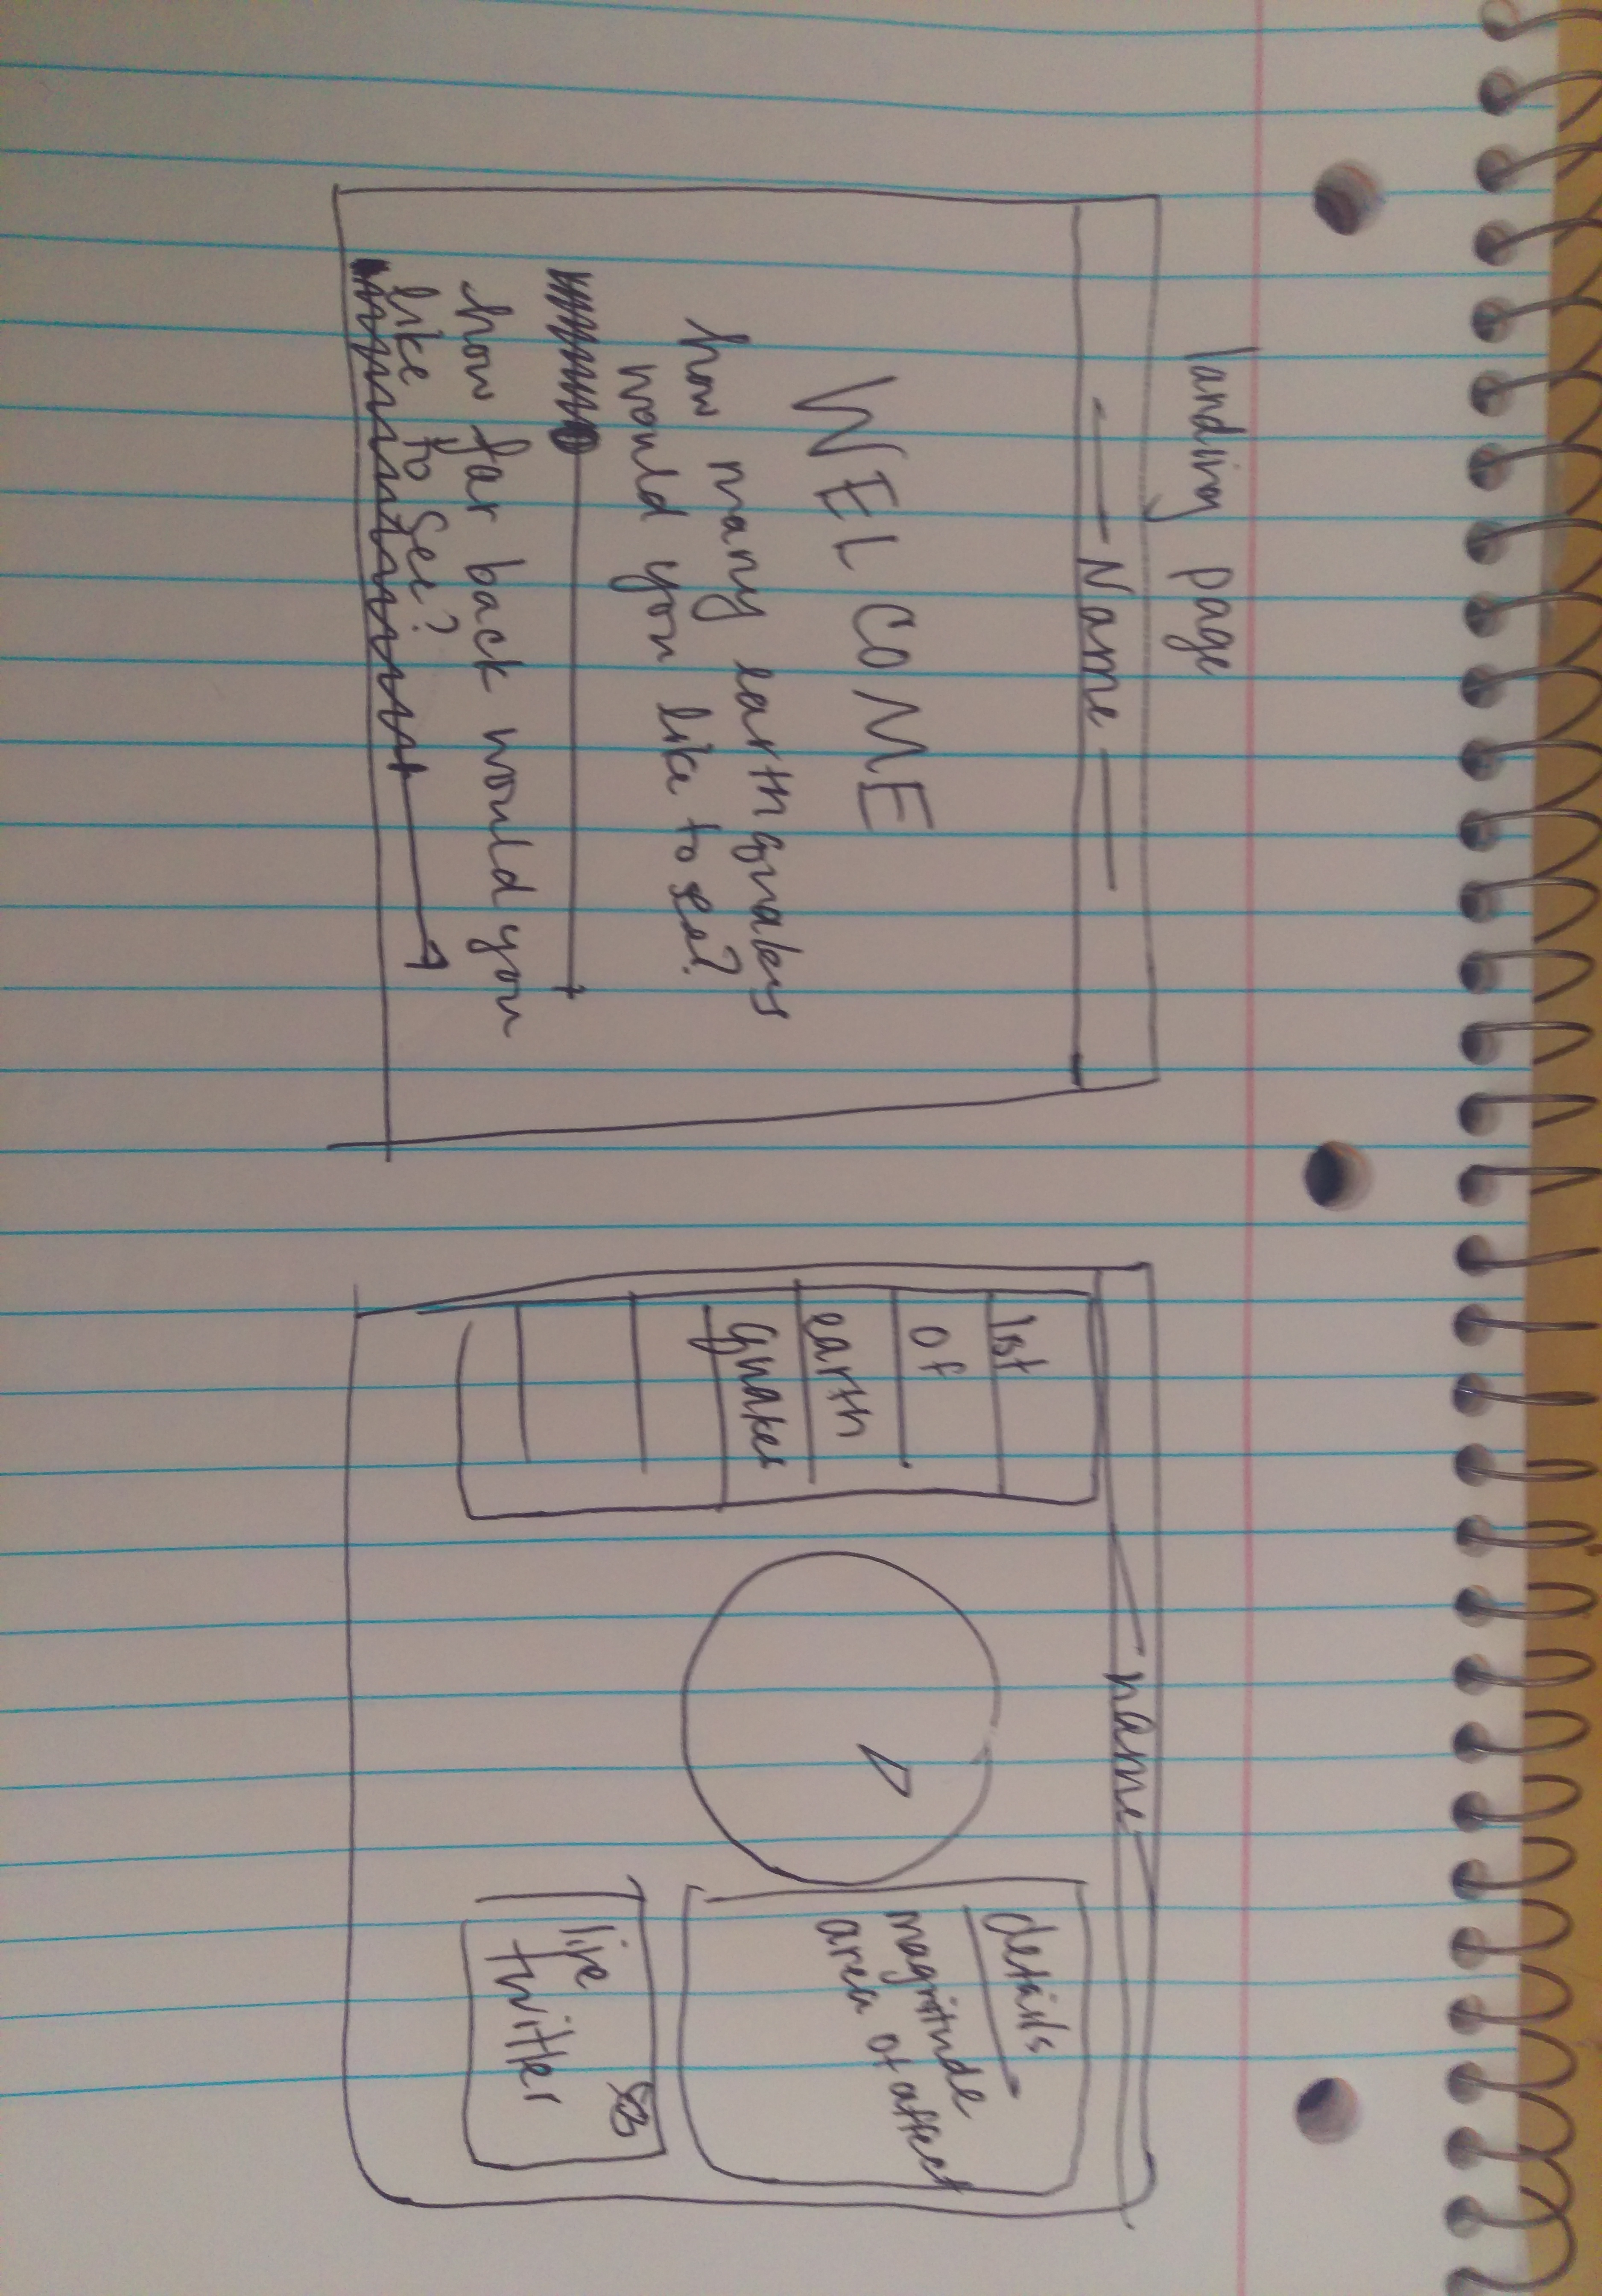 landing page
Name
WELCOME
how many earthquakes
would you like to see?
how far back would you
like to see?
name
list
of
earth
quakes
details
magnitude
area of affect
live
twitter